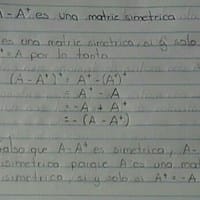 - A⁺ es una matriz simetrica
es una matriz simetrica, si y solo
⁺ = A por lo tanto
(A - A⁺)⁺ = A⁺ - (A⁺)⁺
= A⁺ - A
= -A + A⁺
= - (A - A⁺)
falso que A - A⁺ es simetrica, A -
isimetrica porque A es una mat
isimetrica, si y solo si A⁺ = -A.